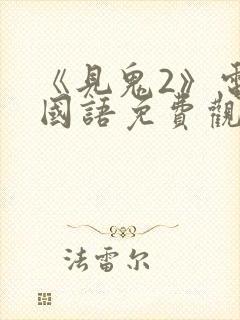 《見鬼2》電
國語免費觀
法雷尔